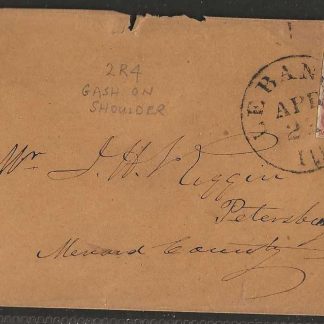 2R4
GASH ON
SHOULDER
LEBAN
APR
2
Ill
Mr J. H. Riggin
Petersbu
Menard County